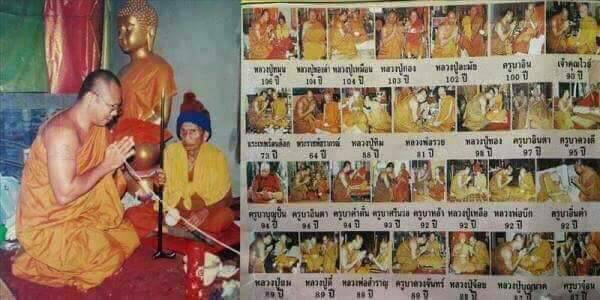 หลวงปู่หมุน หลวงปู่ทองดำ หลวงปู่เหมือน หลวงปู่กอง หลวงปู่ละมัย ครูบาอิน เจ้าคุณไวย์
106 ปี 104 ปี 104 ปี 103 ปี 102 ปี 100 ปี 93 ปี
หลวงปู่ทิม หลวงพ่อรวย หลวงปู่ทอง ครูบาอินตา ครูบาดวงดี
73 ปี 64 ปี 88 ปี 98 ปี 97 ปี 95 ปี
ครูบาบุญปั๋น ครูบาอินตา ครูบาคำตั๋น ครูบาศรีนวล ครูบาหล้า หลวงปู่เหลือ หลวงพ่อบัก ครูบาอิ่นคำ
94 ปี 94 ปี 94 ปี 93 ปี 92 ปี 92 ปี 92 ปี 92 ปี
หลวงปู่ตี๋ หลวงพ่อสำราญ ครูบาดวงจันทร์ หลวงปู่จ้อย หลวงปู่บุญนาค ครูบาจุ๋ม
89 ปี 89 ปี 88 ปี 88 ปี